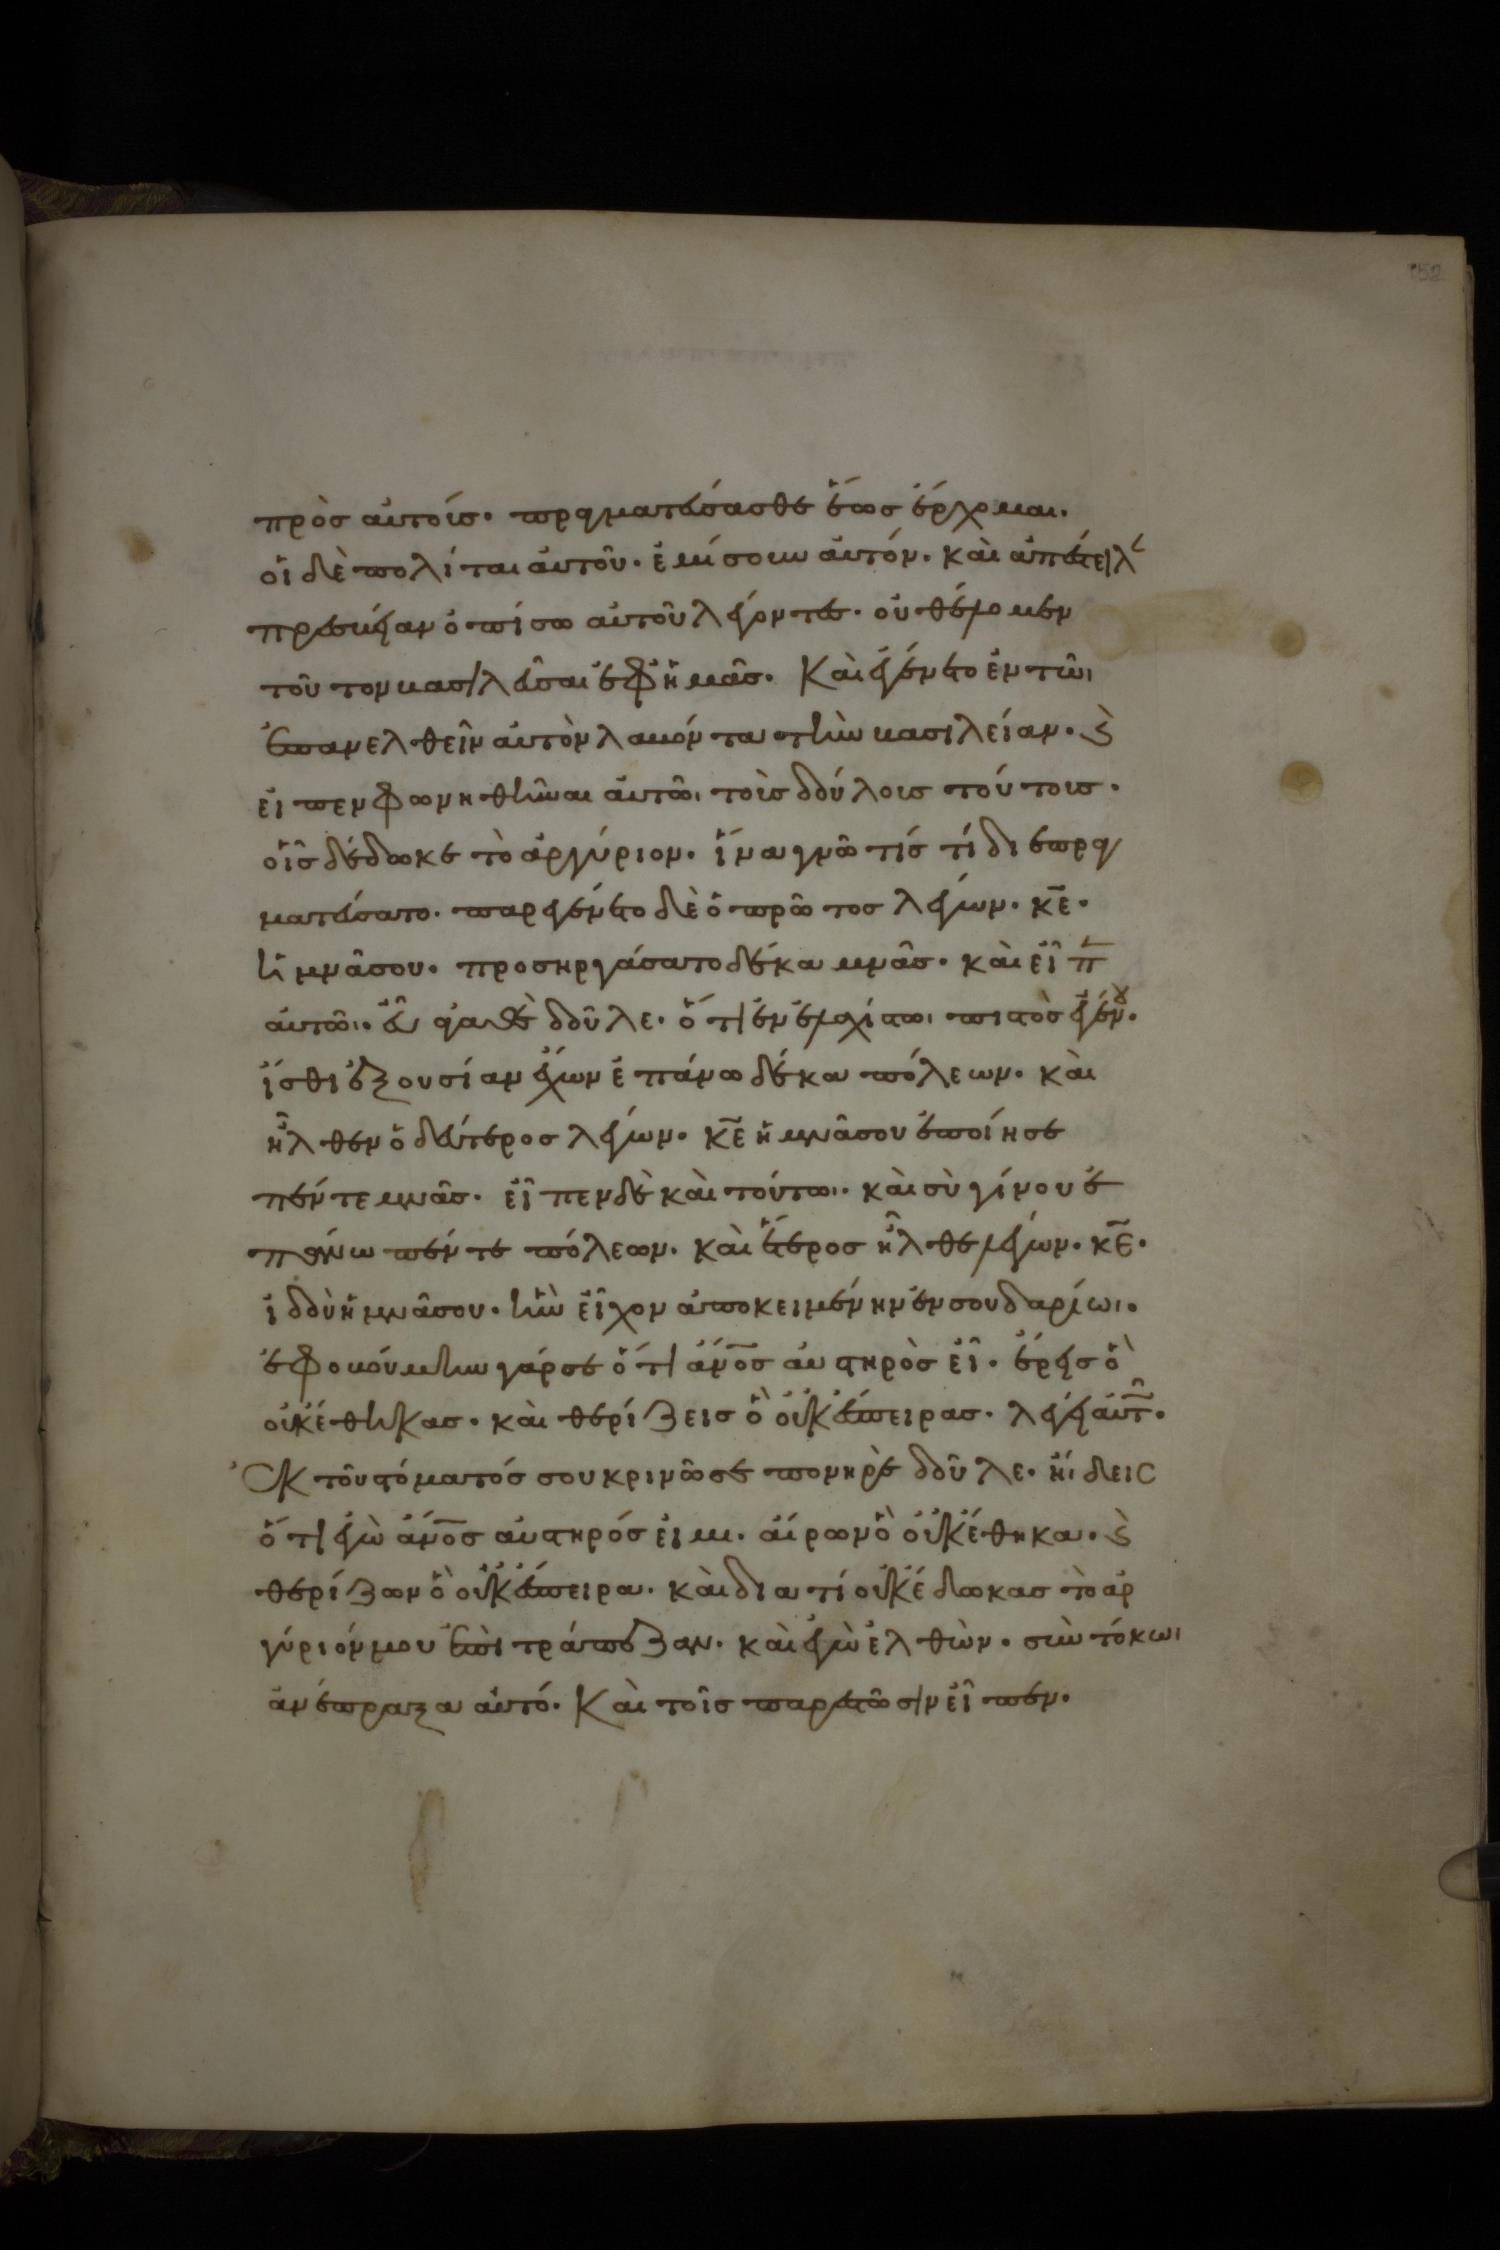 πρὸσ αὐτοίσ· πραγματεύσασθε ἕωσ ἔρχομαι·
οἱ δὲ πολίται αὐτοῦ· ἐμίσουν αὐτόν· καὶ ἀπέστειλ
πρεσβείαν ὀπίσω αὐτοῦ λέγοντεσ· οὐ θέλομεν
τοῦτον βασιλεῦσαι ἐφ ἡμᾶσ· Καὶ ἐγένετο ἐν τῶι
ἐπανελθεῖν αὐτὸν λαβόντα τὴν βασιλείαν· ϗ
εἶπεν φωνηθῆναι αὐτῶι τοὺσ δούλουσ τούτουσ·
οἷσ δέδωκε τὸ ἀργύριον· ἵνα γνῶ τίσ τί διεπραγ
ματεύσατο· παρεγένετο δὲ ὁ πρῶτοσ λέγων· κ̅ε̅·
ἡ μνᾶ σου· προσηργάσατο δέκα μνᾶσ· καὶ εἶπ
αὐτῶι· εὖ ἀγαθὲ δοῦλε· ὅτι ἐν ἐλαχίστωι πιστὸσ ἐγένου·
ἴσθι ἐξουσίαν ἔχων ἐπάνω δέκα πόλεων· καὶ
ἦλθεν ὁ δεύτεροσ λέγων· κ̅ε̅ ἡ μνᾶ σου ἐποίησε
πέντε μνᾶσ· εἶπεν δὲ καὶ τούτωι· καὶ σὺ γίνου ἐ
πάνω πέντε πόλεων· καὶ ἕτεροσ ἦλθε λέγων· κ̅ε̅·
ἰδοὺ ἡ μνᾶ σου· ἣν εἶχον ἀποκειμένην ἐν σουδαρίωι·
ἐφοβούμην γάρ σε ὅτι ἄν̅ο̅σ αὐστηρὸσ εἶ· αἴρεισ ὃ
οὐκ ἔθηκασ· καὶ θερίζεισ ὃ οὐκ ἔσπειρασ· λέγει αὐτ·
Ἐκ τοῦ στόματόσ σου κρινῶ σε πονηρὲ δοῦλε· ἤιδεισ
ὅτι ἐγὼ ἄν̅ο̅σ αὐστηρόσ εἰμι· αἴρων ὃ οὐκ ἔθηκα· ϗ
θερίζων ὃ οὐκ ἔσπειρα· καὶ διατί οὐκ ἔδωκασ τὸ ἀρ
γύριόν μου ἐπὶ τράπεζαν· καὶ ἐγὼ ἐλθὼν· σὺν τόκωι
ἂν ἔπραξα αὐτό· Καὶ τοῖσ παρεστῶσιν εἶπεν·